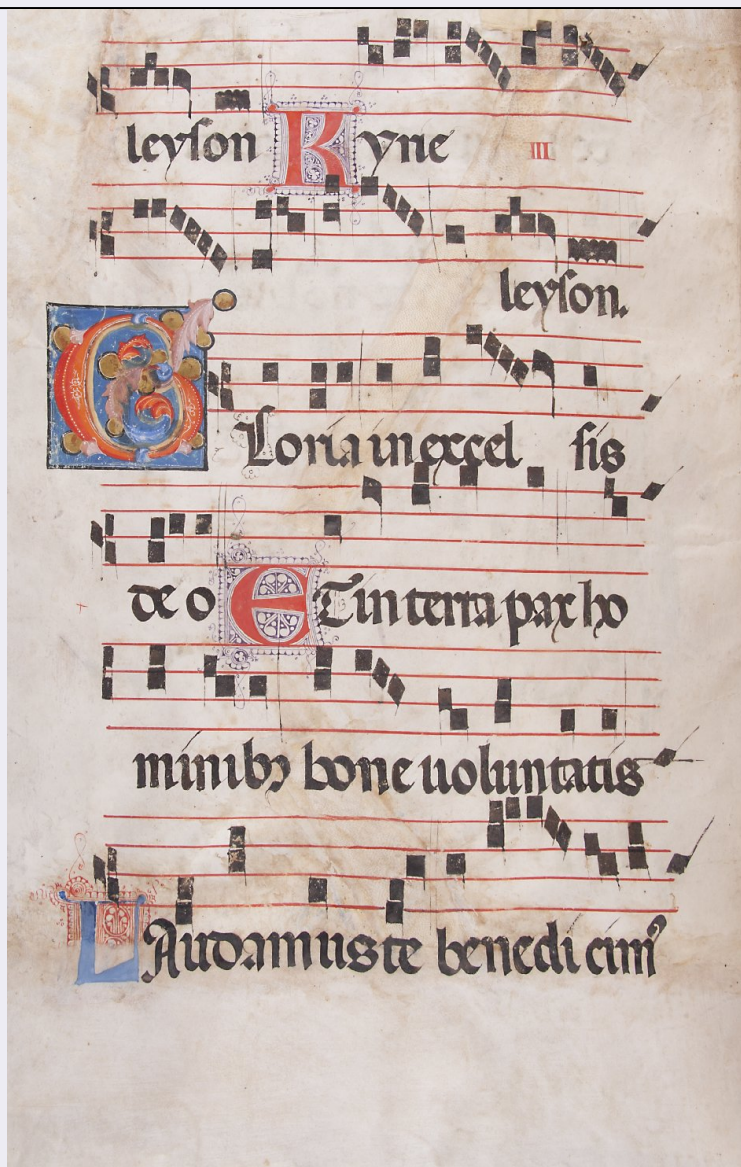 leyson Kyrie III
leyson.
Gloria in excel sis
de o ET in terra pax ho
minibꝫ bone uoluntatis
LAudamus te benedi cimꝰ